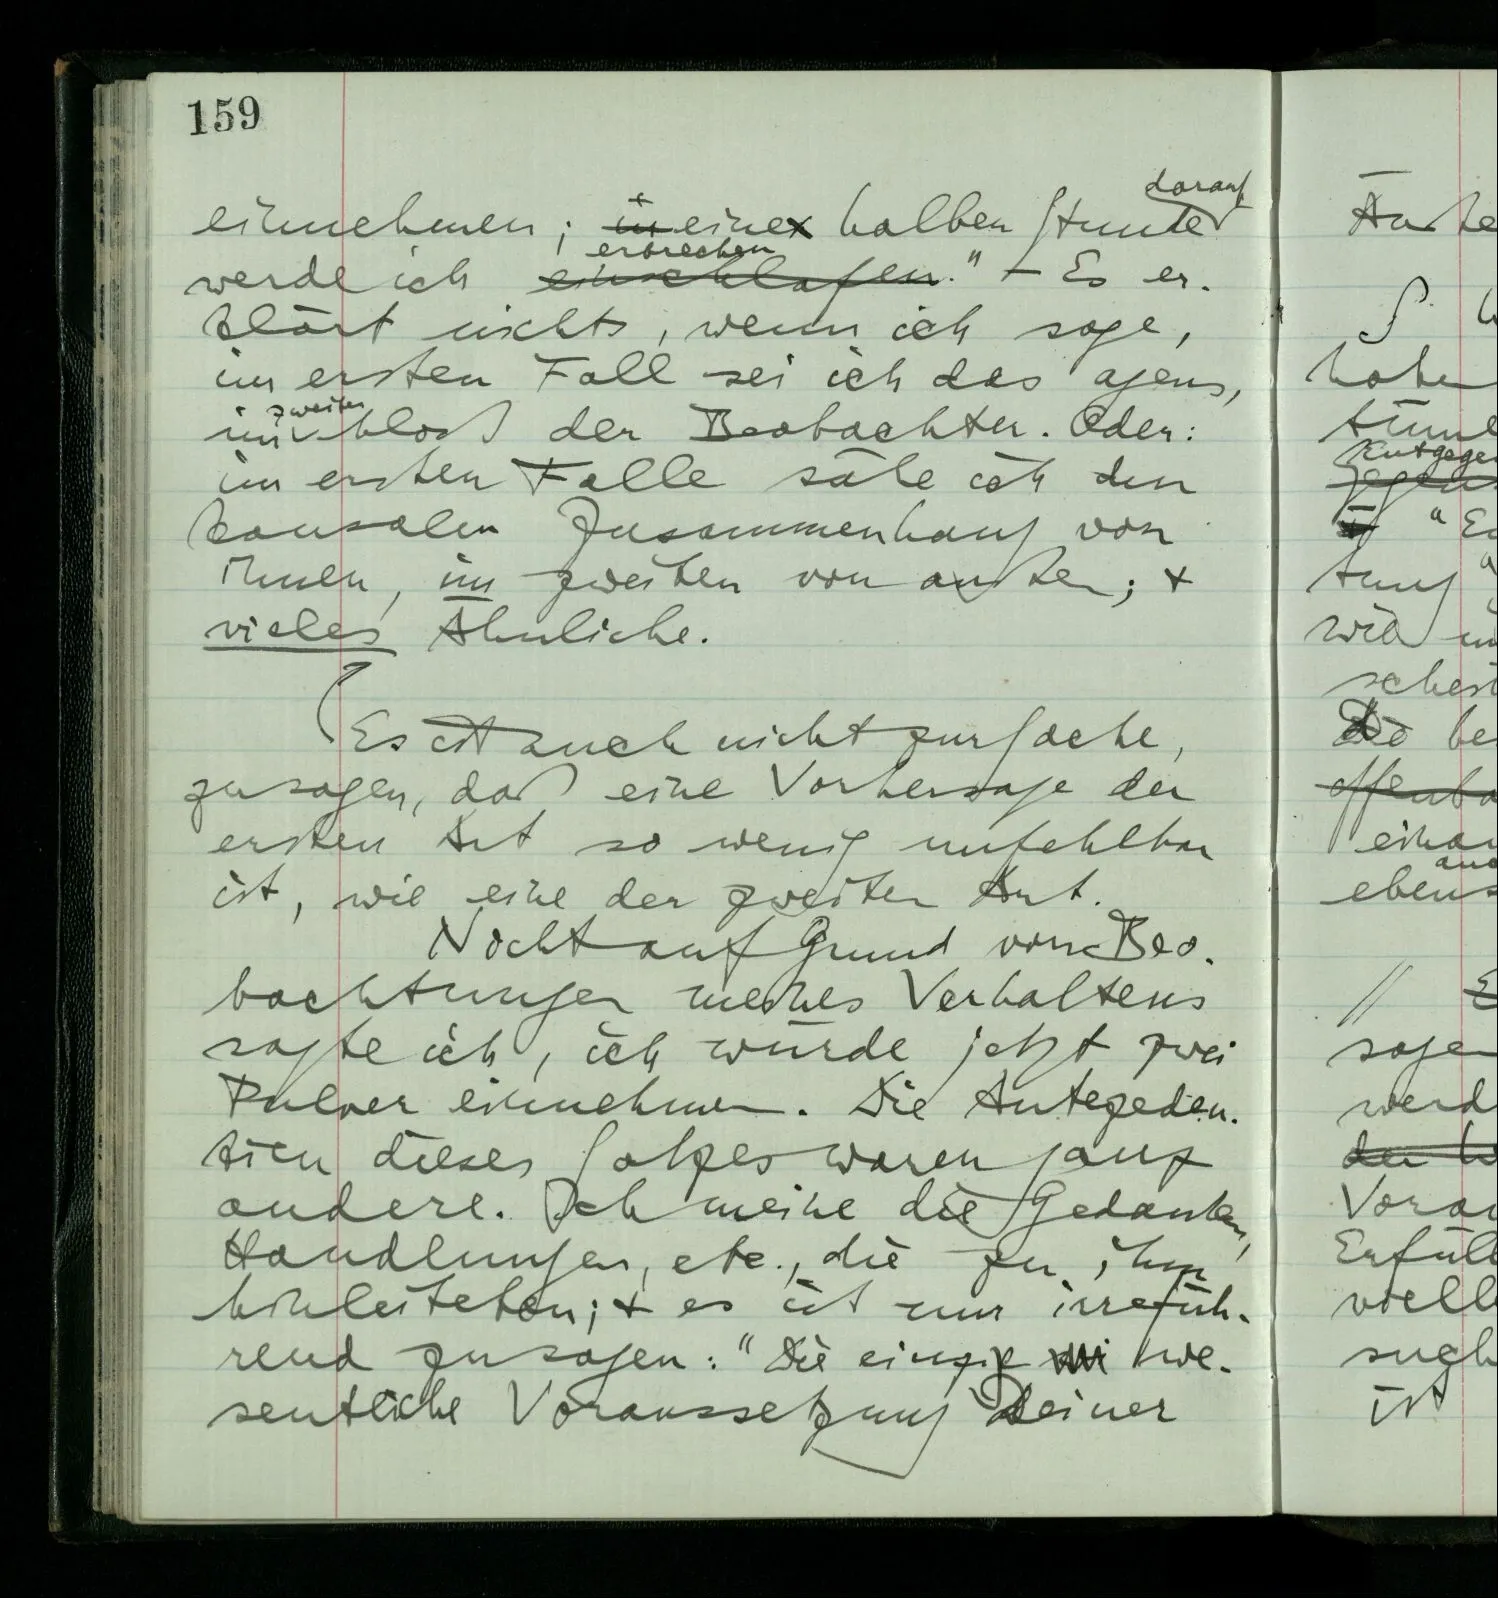 159
darauf
einnehmen; in eine halben Stunde
erbrechen
werde ich einschlafen." – Es er-
klärt nichts, wenn ich sage,
im ersten Fall sei ich das agens,
zweiten
im bloß der Beobachter. Oder:
im ersten Falle sähe ich den
kausalen Zusammenhang von
Innen, im zweiten von außen; +
vieles Ähnliche.
Es ist auch nicht zur Sache,
zu sagen, daß eine Vorhersage der
ersten Art so wenig unfehlbar
ist, wie eine der zweiten Art.
Nicht auf Grund von Beo-
bachtungen meines Verhaltens
sagte ich, ich würde jetzt zwei
Pulver einnehmen. Die Antezeden-
tien dieses Satzes waren ganz
andere. Ich meine die Gedanken,
Handlungen, etc., die zu ihm
hinleiteten; + es ist nur irrefüh-
rend zu sagen: "Die einzige we-
sentliche Voraussetzung Deiner